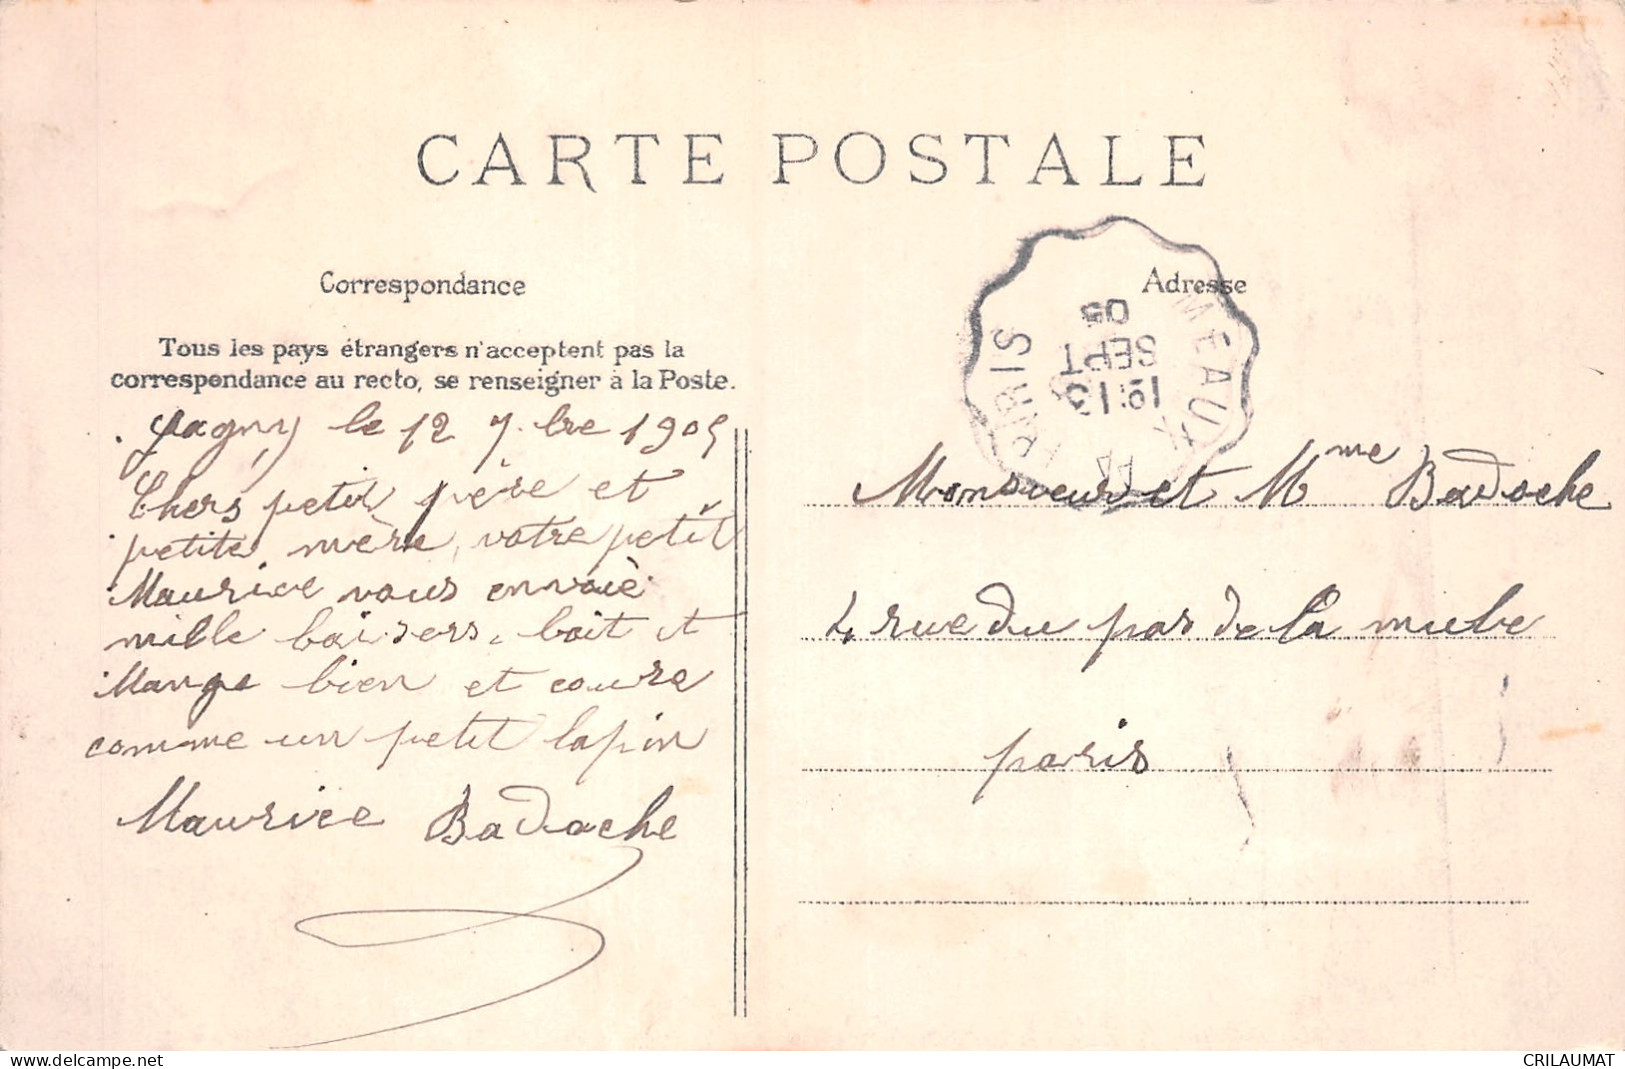 CARTE POSTALE
Correspondance
Tous les pays étrangers n'acceptent pas la
correspondance au recto, se renseigner à la Poste.
Gagny le 12 7.bre 1905
Chers petit père et
petite mère, votre petit
Maurice vous envoiè
mille baisers. boit et
Mange bien et coure
comme un petit lapin
Maurice Badoche
Adresse
PARIS
MEAUX
13
SEPT
05
Monsieur et Mme Badoche
4 rue du pas de la mule
paris
www.delcampe.net
CRILAUMAT